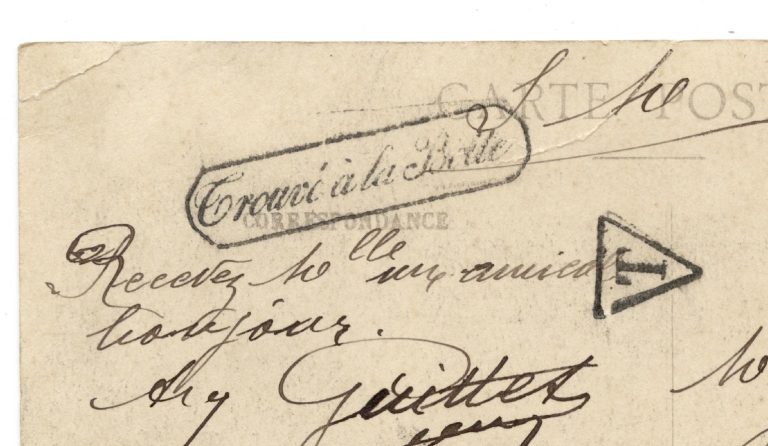 CARTE POST
Trouvé à la Boîte
CORRESPONDANCE
T
Recevez Mlle un amical
bonjour.
Guillet